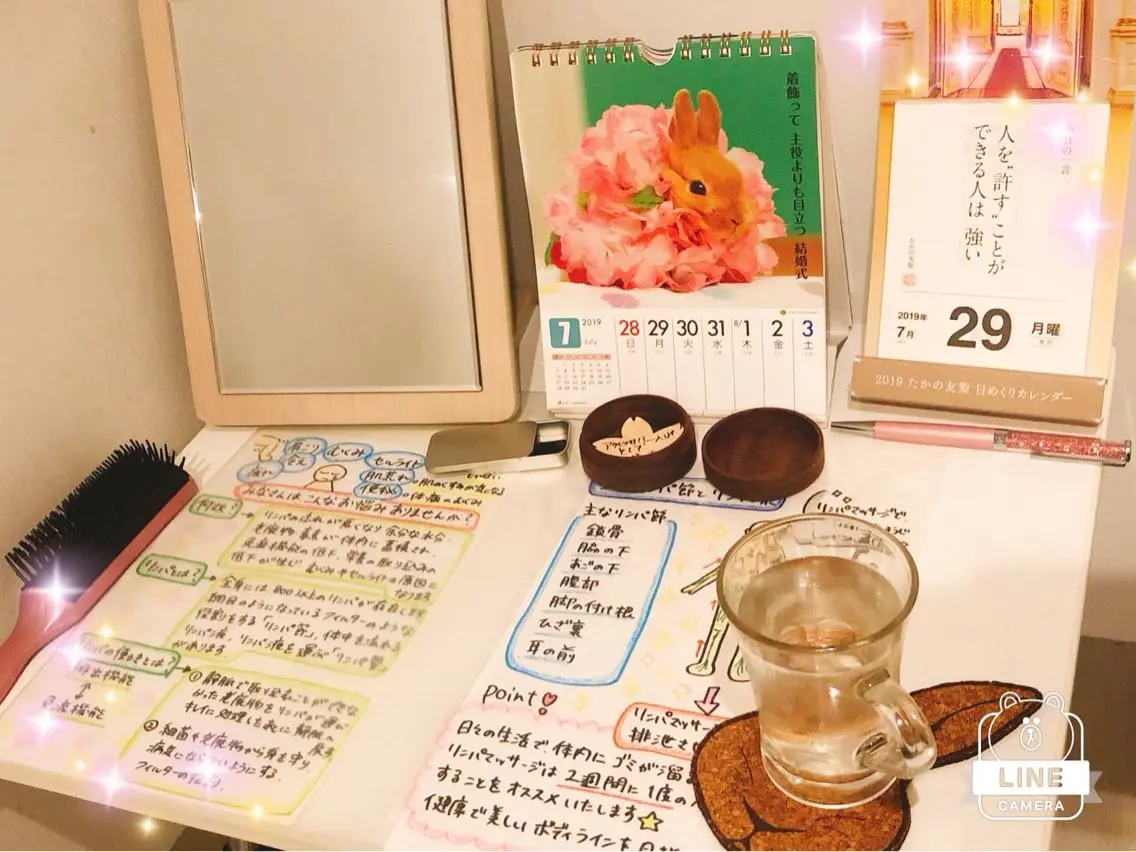 着飾って 主役よりも目立つ 結婚式
7
2019
July
28 29 30 31 8/1 2 3
日 月 火 水 木 金 土
人を"許す"ことが
できる人は 強い
たかの友梨
2019年
7月
29
月曜
2019 たかの友梨 日めくりカレンダー
肩こり
むくみ
セルライト
疲れ
肌荒れ
便秘
みなさんはこんなお悩みありませんか?
リンパの流れが悪くなり 余分な水分
老廃物 毒素が体内に蓄積され
低下が生じ むくみやセルライトの原因に
なります
リンパとは?
全身には800以上のリンパが存在します
網目のようになっているフィルターのような
役割をする「リンパ節」、体中を流れる
リンパ液、リンパ液を運ぶ「リンパ管」
があります。
リンパの働きとは?
排出機能
免疫機能
キレイに処理した後に 静脈へ 戻る
② 細菌や老廃物から身を守り
病気にならないようにする
フィルターの役割
主なリンパ節
鎖骨
脇の下
あごの下
腹部
脚の付け根
ひざ裏
耳の前
リンパマッサージで
Point
リンパマッサー
排泄さ
日々の生活で体内にゴミが溜
リンパマッサージは 2週間に1度の
することをオススメいたします
健康で美しいボディラインを目
LINE
CAMERA